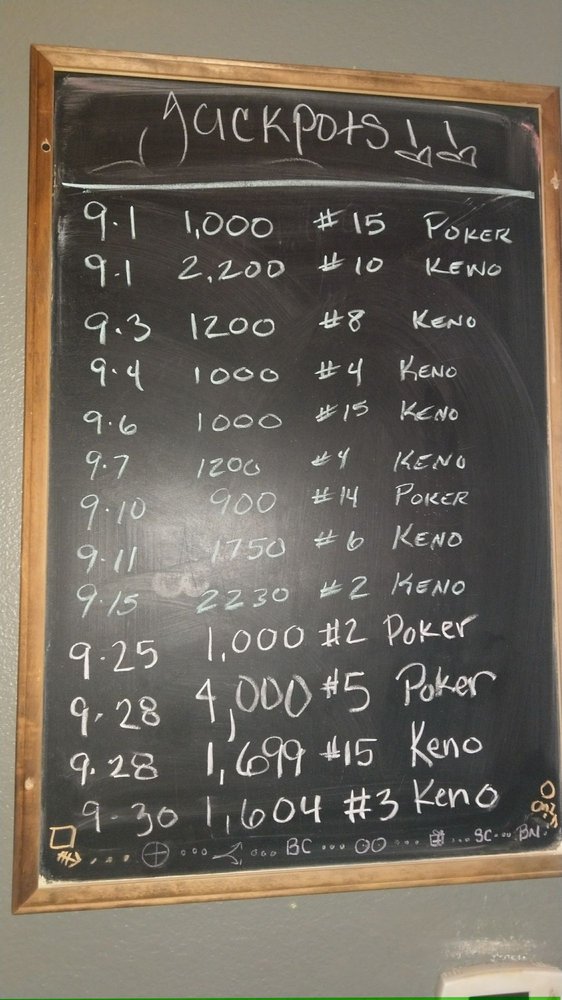 Jackpots!!
9.1 1,000 #15 POKER
9.1 2,200 #10 KENO
9.3 1200 #8 KENO
9.4 1000 #4 KENO
9.6 1000 #15 KENO
9.7 1200 #4 KENO
9.10 900 #14 POKER
9.11 1750 #6 KENO
9.15 2230 #2 KENO
9.25 1,000 #2 Poker
9.28 4,000 #5 Poker
9.28 1,699 #15 Keno
9-30 1,604 #3 Keno
BC SC BN